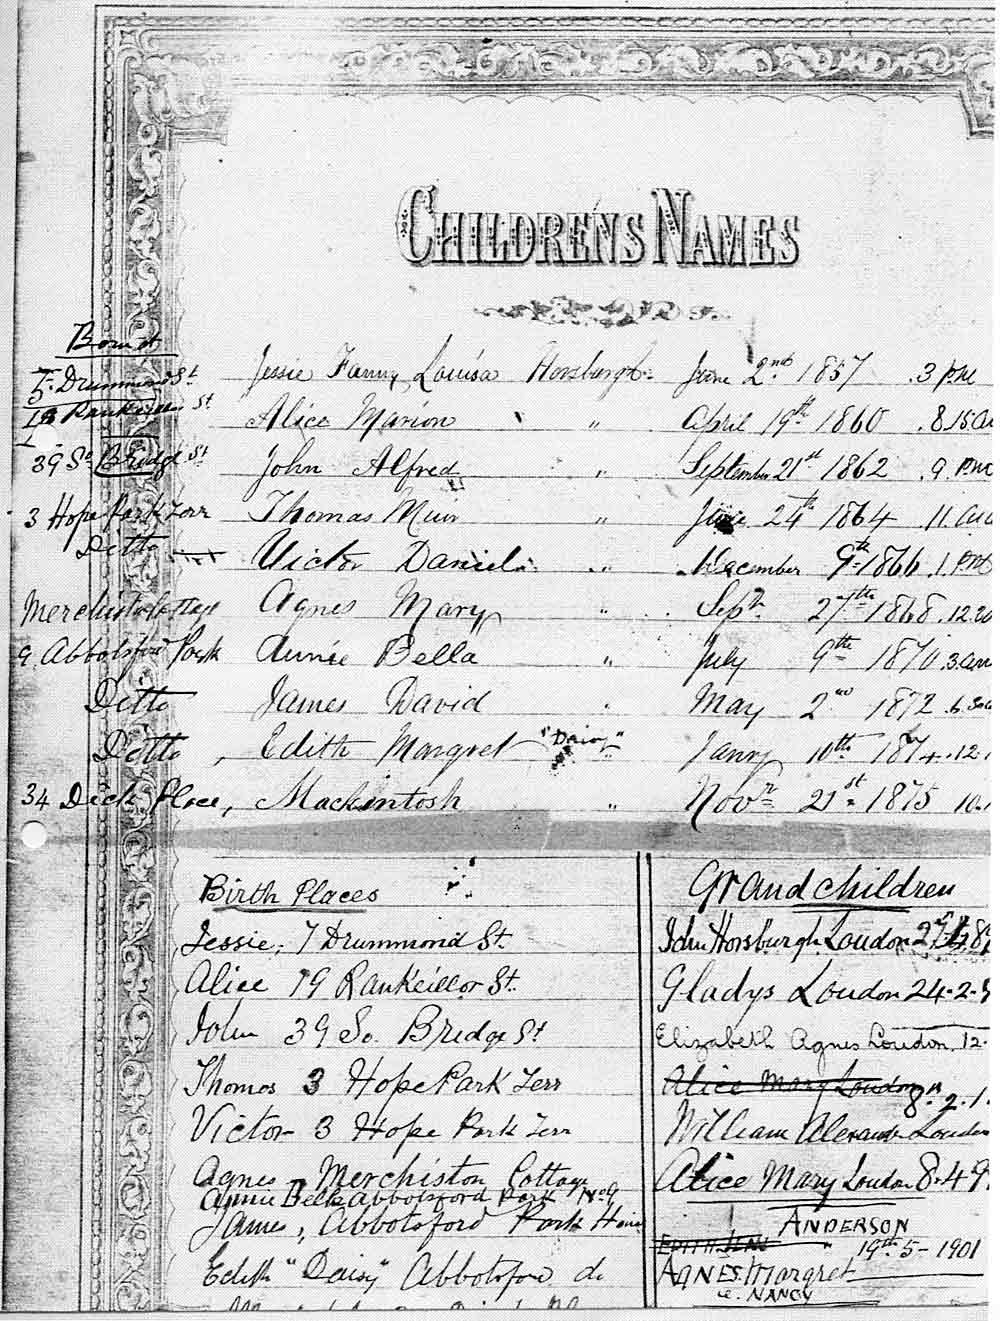 CHILDRENS NAMES
Born at
5 Drummond St Jessie Fanny Louisa Horsburgh June 2nd 1857 .3 pm
Rankeillor St Alice Marion " April 19th 1860 .8.15 am
39 So Bridge St John Alfred " September 21st 1862 .9. PM
3 Hope Park Terr Thomas Muir " June 24th 1864 .11. am
Ditto Victor Daniel " December 9th 1866 .1. PM
Merchiston Cottage Agnes Mary " Sept 27th 1868. 12.20
9. Abbotsford Park Annie Bella " July 9th 1870 .3. am
Ditto James David " May 2nd 1872 .6.
Ditto , Edith Margret "Daisy" " Janry 10th 1874. .12.
34 Dick Place, Mackintosh " Novr 21st 1875 10.
Birth Places
Jessie, 7 Drummond St.
Alice 19 Rankeillor St.
John 39 So. Bridge St
Thomas 3 Hope Park Terr
Victor 3 Hope Park Terr
Agnes Merchiston Cottage
Annie Bella Abbotsford Park No 9
James, Abbotsford Park
Edith "Daisy" Abbotsford do
Grandchildren
John Horsburgh Loudon
Gladys Loudon 24-2-
Elizabeth Agnes Loudon. 12.
Alice Mary Loudon
8. 2. 1.
William Alexander Loudon
Alice Mary Loudon 8.4.9
ANDERSON
EDITH JEAN " 19th-5-1901
AGNES Margret
i.e. NANCY